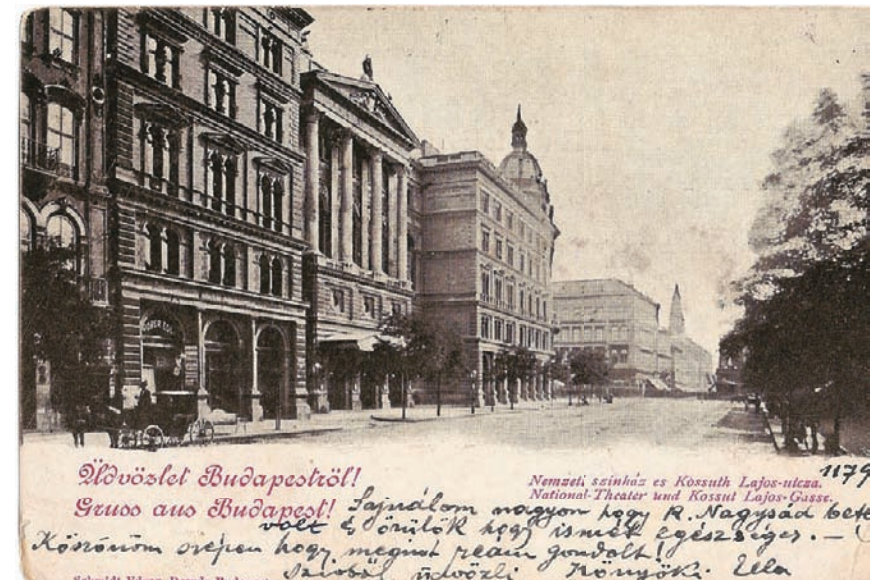 Üdvözlet Budapestről!
Gruss aus Budapest!
Nemzeti színház es Kossuth Lajos-utcza.
National-Theater und Kossut Lajos-Gasse.
1179
Sajnálom nagyon hogy K. Nagysád bete
volt & örülök hogy ismét egészséges. –
Köszönöm szépen hogy megint reám gondolt!
üdvözli Könyöki Ella